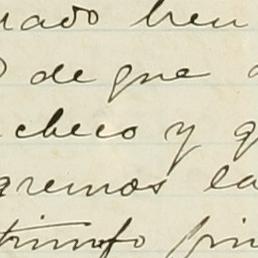 rado bien
de que
checo y q
gremos la
triunfo fin